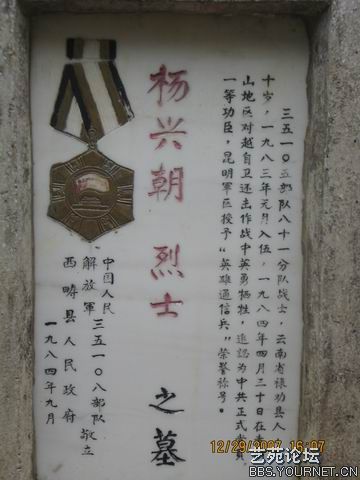 三五一〇五部队八十一分队战士，云南省禄劝县人
十岁，一九八三年元月入伍，一九八四年四月三十日在
山地区对越自卫还击作战中英勇牺牲，追认为中共正式党员
一等功臣，昆明軍区授予“英雄通信兵”荣誉称号。
杨兴朝 烈士 之墓
中国人民
解放軍 三五一〇八部队
西畴县人民政府 敬立
一九八四年九月
12/29/2007 16:07
艺苑论坛
BBS.YOURNET.CN